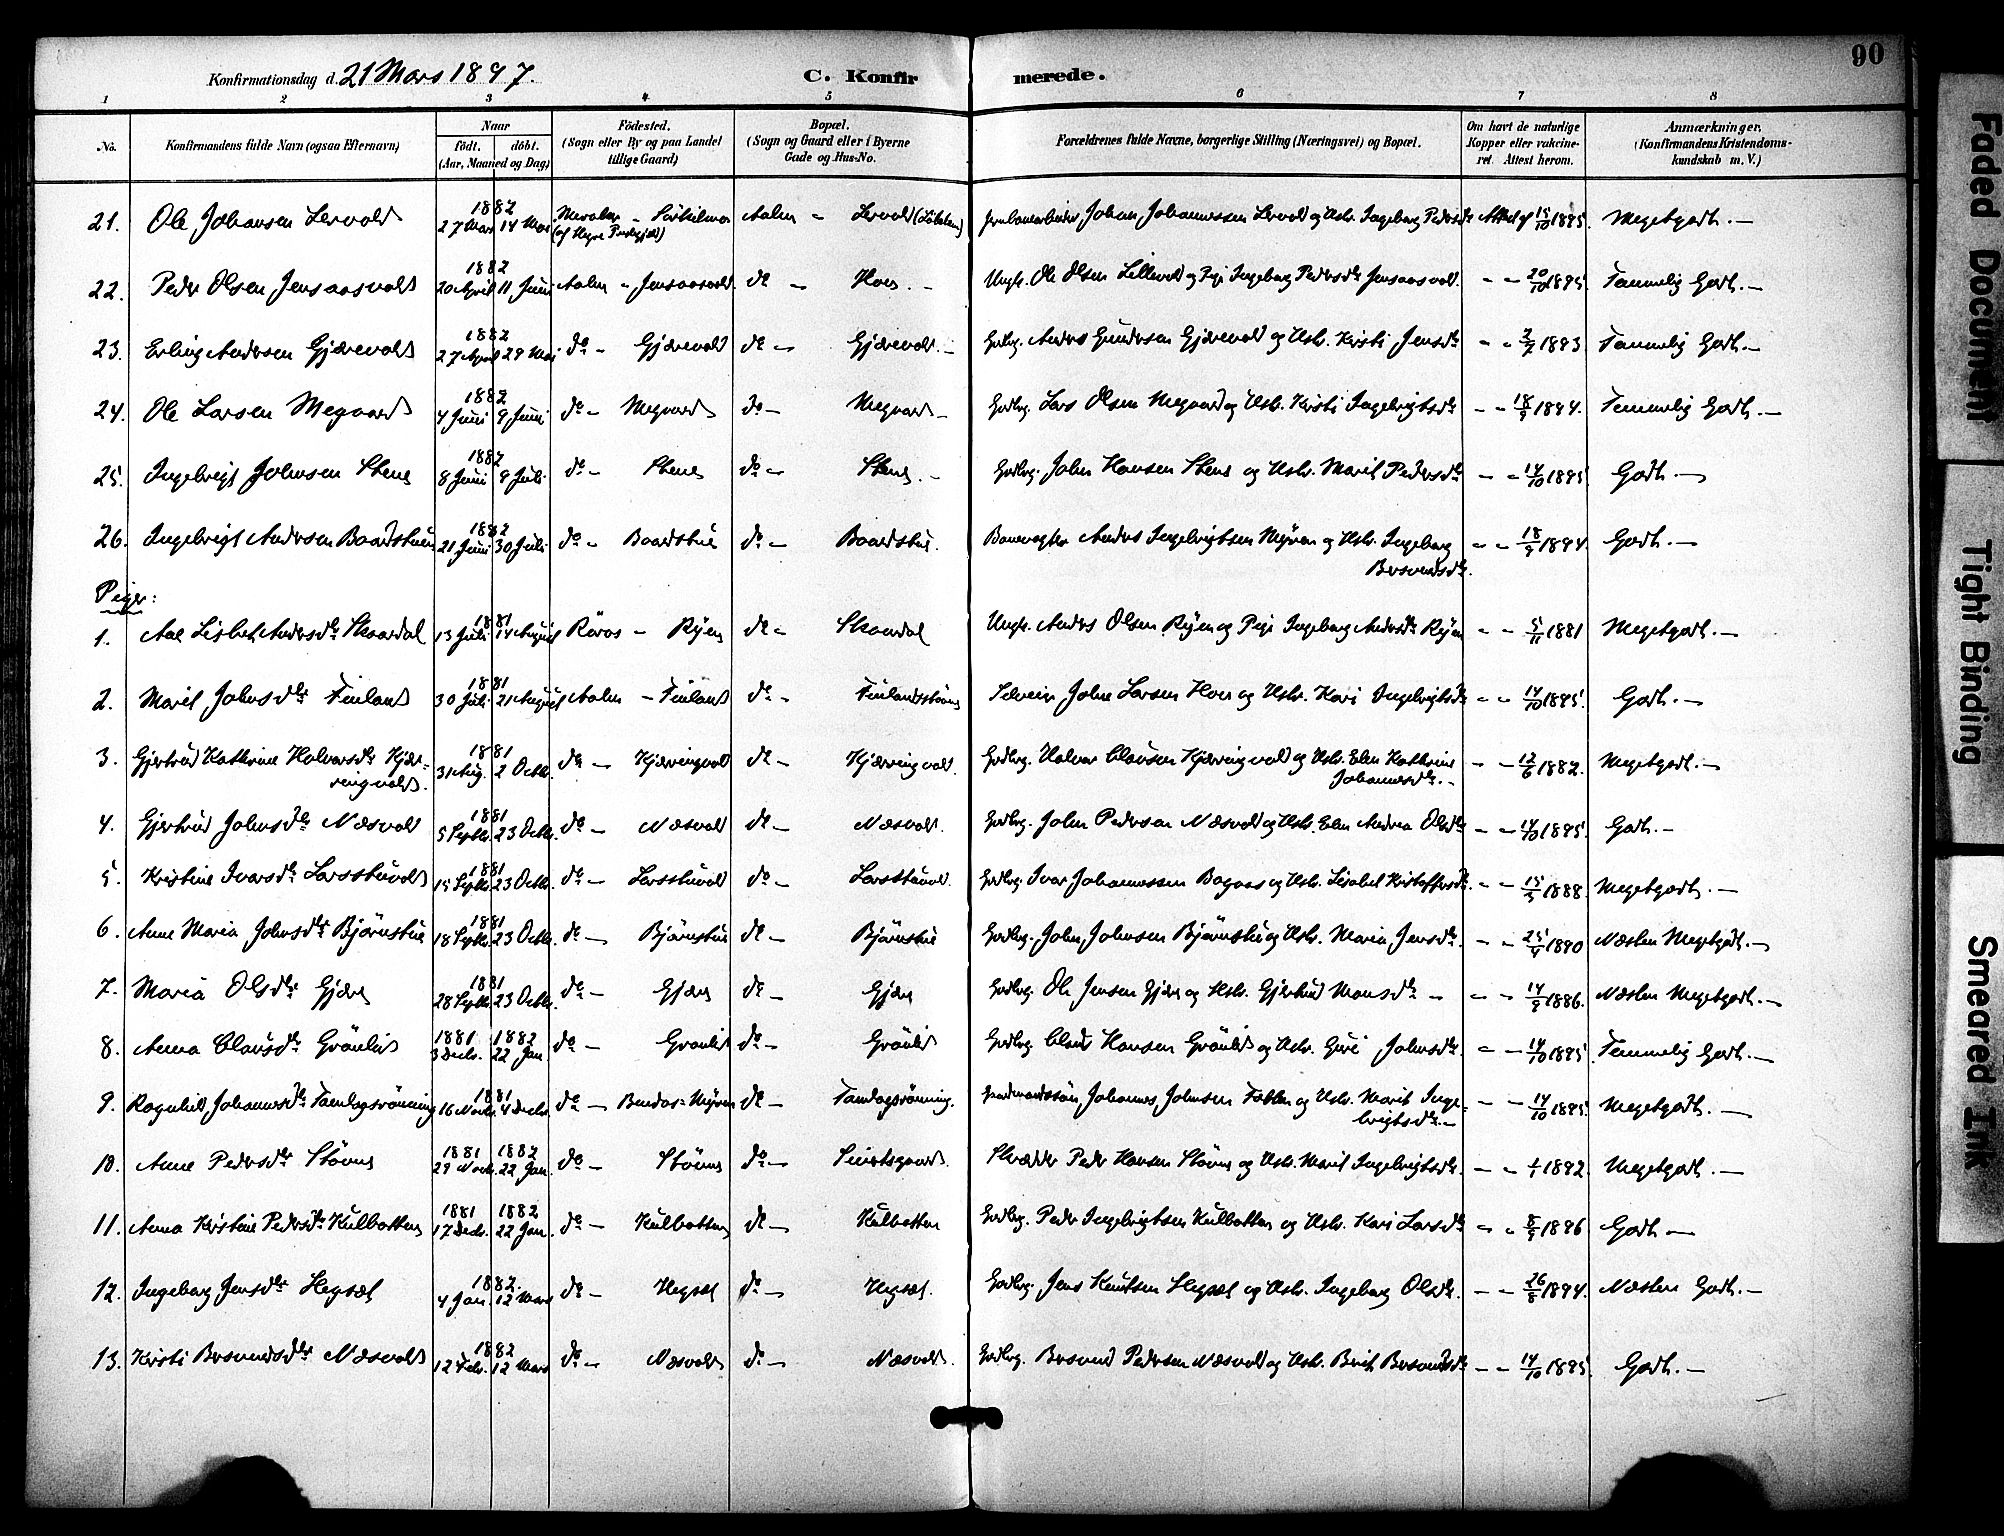 90
Konfirmationsdag d. 21 Mars 1897. C. Konfirmerede.
1 2 3 4 5 6 7 8
No. Konfirmandens fulde Navn (ogsaa Efternavn) Naar født. døbt. (Aar, Maaned og Dag) Födested. (Sogn eller By og paa Landet tillige Gaard) Bopæl. (Sogn og Gaard eller i Byerne Gade og Hus-No. Forældrenes fulde Navne, borgerlige Stilling (Næringsvei) og Bopæl. Om havt de naturlige Kopper eller vaccineret. Attest herom. Anmærkninger. (Konfirmandens Kristendomskundskab m. V.)
21. Ole Johansen Lervold 1882 27 Mars 14 Mai Meraker - (af Hegre Præstegjeld) Aalen - Lervold Johan Johannessen Lervold og Hstr. Ingeborg Pedersdr Attest af 15/10 1895. Megetgodt. -
22. Peder Olsen Jensaasvold 1882 20 April 11 Juni Aalen - Jensaasvold do - Hov. - Ungk. Ole Olsen Lillevold og Pige Ingeborg Pedersdr Jensaasvold. - - 20/10 1895. Temmelig Godt. -
23. Erling Andersen Gjærevold 1882 27 April 29 Mai do - Gjærevold do - Gjærevold. - Grdbrg. Anders Gundersen Gjærevold og Hstr. Kristi Jensdr - - 1893 Temmelig Godt. -
24. Ole Larsen Megaard 1882 4 Juni 9 Juni do - Megaard do - Megaard - Grdbrg. Lars Olsen Megaard og Hstr. Kristi Ingebrigtsdr - - 18/9 1894. Temmelig Godt. -
25. Ingebrigt Johnsen Stene 1882 8 Juni 9 Juli do - Stene do - Stene. - Grdbrg. John Hansen Stene og Hstr. Marit Pedersdr - - 14/10 1895 Godt. -
26. Ingebrigt Andersen Baardstuen 1882 21 Juni 30 Juli do - Baardstue do - Baardstue. Banevogter Anders Ingebrigtsen Myren og Hstr. Ingeborg Bersvendsdr. - - 18/9 1894. Godt. -
Piger:
1. Ane Lisbet Andersdr Skaardal 1881 13 Juli 14 August Röros - Ryen do - Skaardal Ungk. Anders Olsen Ryen og Pige Ingeborg Andersdr Ryen - - 5/11 1881 Megetgodt. -
2. Marit Johnsdr Finland 1881 30 Juli 21 August Aalen - Finland do - John Larsen Hov og Hstr. Kari Ingebrigtsdr - - 14/10 1895. Godt. -
3. Gjertrud Kathrine Halvorsdr Kjærringvold. 1881 31 Aug. 2 Octbr. do - Kjærringvold do - Kjærringvold. Grdbrg. Halvor Clausen Kjærringvold og Hstr. Elen Kathrine Johannesdr. - - - 12/6 1882. Megetgodt. -
4. Gjertrud Johnsdr Næsvold 1881 5 Septbr. 23 Octbr. do - Næsvold do - Næsvold. Grdbrg. John Pedersen Næsvold og Hstr. Elen Andrea Olsdr - - 14/10 1895. Godt. -
5. Kristine Ivarsdr Larsstuvold 1881 15 Septbr. 23 Octbr. do - Larsstuvold do - Larsstuvold. Grdbrg. Ivar Johannessen Bogaas og Hstr. Lisabet Kristoffersdr. - - 1888 Megetgodt. -
6. Anne Maria Johnsdr Bjørnstue 1881 18 Septbr. 23 Octbr. do - Bjørnstue do - Bjørnstue Grdbrg. John Johnsen Bjørnstu og Hstr. Maria Jensdr. - - 25/4 1890 Næsten Megetgodt. -
7. Maria Olsdr Gjære 1881 28 Septbr. 23 Octbr. do - Gjære do - Gjære Grdbrg. Ole Jensen Gjære og Hstr. Gjertrud Monsdr - - - 14/9 1886. Næsten Megetgodt. -
8. Anna Clausdr Grønlid 1881 3 Decbr. 1882 22 Jan. do - Grønlid do - Grønlid Grdbrg. Claus Hansen Grønlid og Hstr. Guri Johnsdr. - - 14/10 1895. Temmelig Godt. -
9. Ragnhild Johannesdr Tamlagsrønning 1881 16 Novbr. 4 Decbr. do - Bendos-Myren do - Tamlagsrønning. Johannes Johnsen og Hstr. Marit Ingebrigtsdr. - - - 14/10 1895. Megetgodt. -
10. Anne Pedersdr Støvne 1881 29 Novbr. 1882 22 Jan. do - Støvne do - Skrædder Peder Hansen Støvne og Hstr. Marit Ingebrigtsdr. - - 1/1 1892. Megetgodt. -
11. Anna Kristine Pedersdr Kulbotten 1881 17 Decbr. 1882 22 Jan. do - Kulbotten do - Kulbotten Grdbrg. Peder Ingebrigtsen Kulbotten og Hstr. Kari Larsdr - - 8/9 1886 Godt. -
12. Ingeborg Jensdr Hegset 1882. 4 Jan. 12 Mars do - Hegset do - Hegset. Grdbrg. Jens Knutsen Hegset og Hstr. Ingeborg Olsdr. - - 26/8 1894. Næsten Godt. -
13. Kristi Bersvendsdr Næsvold 1882 12 Febr. 12 Mars do - Næsvold do - Næsvold. Grdbrg. Bersvend Pedersen Næsvold og Hstr. Berit Bersvendsdr - - 14/10 1895. Godt. -
Faded Document
Tight Binding
Smeared Ink